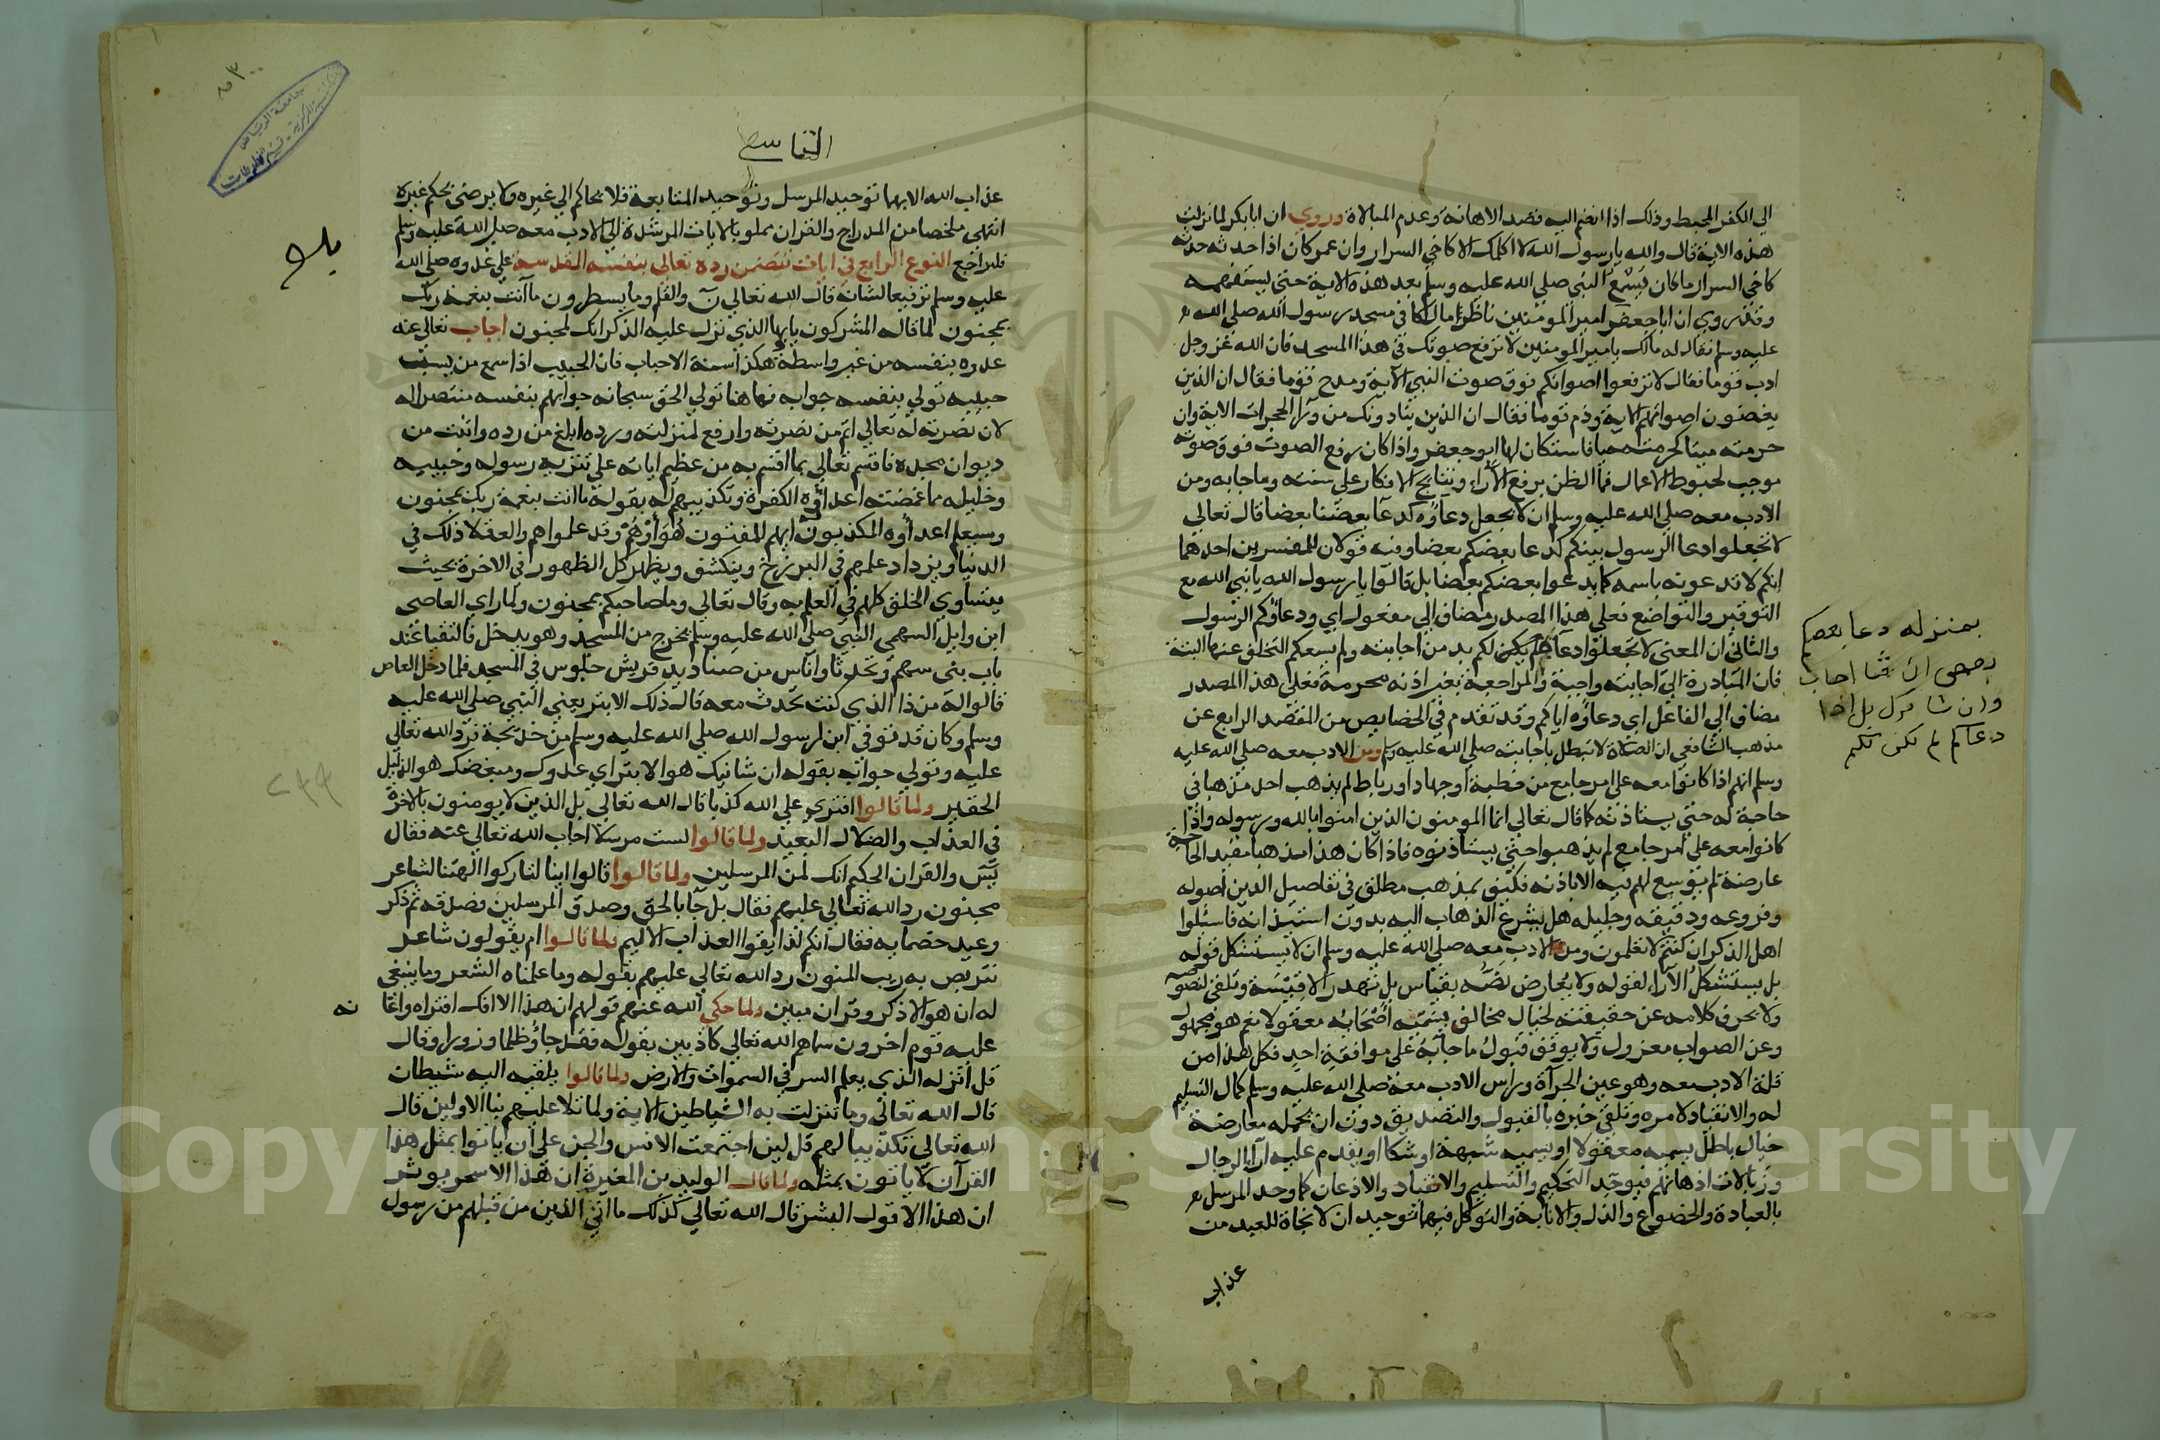 الي الكفر المحبط وذلك اذا انضم اليه قصد الاهانة وعدم المبالاة وروي ان ابا بكر لما نزلت
هذه الاية قال والله يا رسول الله لا اكلمك الا كاخي السرار وان عمر كان اذا حدثه حدثه
كاخي السرار ما كان يسمع النبي صلي الله عليه وسلم بعد هذه الاية حتي يستفهمه
وقد روي ان ابا جعفر امير المومنين ناظر مالكا في مسجد رسول الله صلي الله
عليه وسلم فقال له مالك يا امير المومنين لا ترفع صوتك في هذا المسجد فان الله عز وجل
ادب قوما فقال لا ترفعوا اصواتكم فوق صوت النبي الاية ومدح قوما فقال ان الذين
يغضون اصواتهم الاية وذم قوما فقال ان الذين ينادونك من ورآ الحجرات الاية وان
حرمته ميتا كحرمته حيا فاستكان لها ابو جعفر واذا كان رفع الصوت فوق صوته
موجب لحبوط الاعمال فما الظن برفع الآراء ونتايج الافكار علي سنته وما جا به ومن
الادب معه صلي الله عليه وسلم ان لا يجعل دعآؤه كدعآ بعضنا بعضا قال تعالي
لا تجعلوا دعا الرسول بينكم كدعا بعضكم بعضا وفيه قولان للمفسرين احدهما
انكم لا تدعونه باسمه كما يدعوا بعضكم بعضا بل قالوا يا رسول الله يا نبي الله مع
التوقير والتواضع فعلي هذا المصدر مضاف الي مفعول اي ودعاؤكم الرسول
والثاني ان المعني لا تجعلوا دعآه لكم يكن لكم بد من اجابته ولم يسعكم التخلف عنها البتة
فان المبادرة الي اجابته واجبة والمراجعة بغير اذنه محرمة فعلي هذا المصدر
مضاف الي الفاعل اي دعاؤه اياكم وقد تقدم في الخصايص من المقصد الرابع عن
مذهب الشافعي ان الصلاة لا تبطل باجابته صلي الله عليه وسلم ومن الادب معه صلي الله عليه
وسلم انهم اذا كانوا معه علي امر جامع من خطبة او جهاد او رباط لم يذهب احد مذهبا في
حاجة له حتي يستاذنه كما قال تعالي انما المومنون الذين امنوا بالله ورسوله واذا
كانوا معه علي امر جامع لم يذهبوا حتي يستاذنوه فاذا كان هذا مذهبا مقيد الحاجة
عارضة لم يوسع لهم فيه الا باذنه فكيف بمذهب مطلق في تفاصيل الدين اصوله
وفروعه ودقيقه وجليله هل يشرع الذهاب اليه بدون استيذانه فاسئلوا
اهل الذكر ان كنتم لا تعلمون ومن الادب معه صلي الله عليه وسلم ان لا يستشكل قوله
بل يستشكل الآراء لقوله ولا يعارض نصه بقياس بل تهدر الاقيسة وتلقي لنصوصه
ولا يحرف كلامه عن حقيقته لخيال مخالف يسميه اصحابه معقولا نعم هو مجهول
وعن الصواب معزول ولا يوقف قبول ما جآ به علي موافقة احد فكل هذا من
قلة الادب معه وهو عين الجرآة وراس الادب معه صلي الله عليه وسلم كمال التسليم
له والانقياد لامره وتلقي خبره بالقبول والتصديق دون ان تحمله معارضة
خيال باطل يسميه معقولا او يسميه شبهة او شكا او يقدم عليه آرآ الرجال
وزبالات اذهانهم فيوحد التحكيم والتسليم والانقياد والاذعان كما وحد المرسل
بالعبادة والخضوع والذل والانابة والتوكل فيهما توحيدان لا نجاة للعبد من
عذاب
بمنزله دعا بعضكم
بعضي ان شا اجاب
وان شا ترك بل اذا
دعاكم لم يكن لكم
التاسع
عذاب الله الا بهما توحيد المرسل وتوحيد المتابعة فلا نحاكم الي غيره ولا يرضي بحكم غيره
انتهي ملخصا من المدارج والقران مملو بالايات المرشدة الي الادب معه صلي الله عليه وسلم
فليراجع النوع الرابع في ايات تتضمن رده تعالي بنفسه المقدسة علي عدوه صلي الله
عليه وسلم ترفيعا لشانه قال الله تعالي ن والقلم وما يسطرون ما انت بنعمة ربك
بمجنون لما قاله المشركون يايها الذي نزل عليه الذكر انك لمجنون اجاب تعالي عنه
عدوه بنفسه من غير واسطة وهكذا سنة الاحباب فان الحبيب اذا سمع من يسب
حبيبه تولي بنفسه جوابه فها هنا تولي الحق سبحانه جوابهم بنفسه منتصرا له
لان نصرته له تعالي اتم من نصرته وارفع لمنزلته ورده ابلغ من رده واثبت من
ديوان مجده فاقسم تعالي بما اقسم به من عظيم اياته علي تنزيه رسوله وحبيبه
وخليله مما غمصته اعداؤه الكفرة وتكذيبهم له بقوله ما انت بنعمة ربك بمجنون
وسيعلم اعداؤه المكذبون ايهم المفتون هو او هم وقد علموا هم والعقلا ذلك في
الدنيا ويزداد علمهم في البرزخ وينكشف ويظهر كل الظهور في الاخرة بحيث
يتساوي الخلق كلهم في العلم به وقال تعالي وما صاحبكم بمجنون ولما راي العاصي
ابن وايل السهمي النبي صلي الله عليه وسلم يخرج من المسجد وهو يدخل فالتقيا عند
باب بني سهم وتحدثا واناس من صناديد قريش جلوس في المسجد فلما دخل العاص
قالوا له من ذا الذي كنت تحدث معه قال ذلك الابتر يعني النبي صلي الله عليه
وسلم وكان قد توفي ابن لرسول الله صلي الله عليه وسلم من خديجة فرد الله تعالي
عليه وتولي جوابه بقوله ان شانيك هو الابتر اي عدوك ومبغضك هو الذليل
الحقير ولما قالوا افتري علي الله كذبا قال الله تعالي بل الذين لا يومنون بالاخرة
في العذاب والضلال البعيد ولما قالوا لست مرسلا اجاب الله تعالي عنه فقال
يس والقران الحكيم انك لمن المرسلين ولما قالوا قالوا اينا لتاركوا الهتنا لشاعر
مجنون رد الله تعالي عليهم فقال بل جآ بالحق وصدق المرسلين فصدقه ثم ذكر
وعيد خصمايه فقال انكم لذايقوا العذاب الاليم ولما قالوا ام يقولون شاعر
نتربص به ريب المنون رد الله تعالي عليهم بقوله وما علمناه الشعر وما ينبغي
له ان هو الا ذكر وقران مبين ولما حكي الله عنهم قولهم ان هذا الا افك افتراه واعانه
عليه قوم اخرون سماهم الله تعالي كاذبين بقوله فقد جاؤ ظلما وزورا وقال
قل انزله الذي يعلم السر في السموات والارض ولما قالوا يلقيه اليه شيطان
قال الله تعالي وما تنزلت به الشياطين الاية ولما تلا عليهم نبا الاولين قال
الله تعالي تكذيبا لهم قل لين اجتمعت الانس والجن علي ان ياتوا بمثل هذا
القرآن لا ياتون بمثله ولما قال الوليد بن المغيرة ان هذا الا سحر يوثر
ان هذا الا قول البشر قال الله تعالي كذلك ما اتي الذين من قبلهم من رسول
جامعة الرياض
Copyright © King Saud University